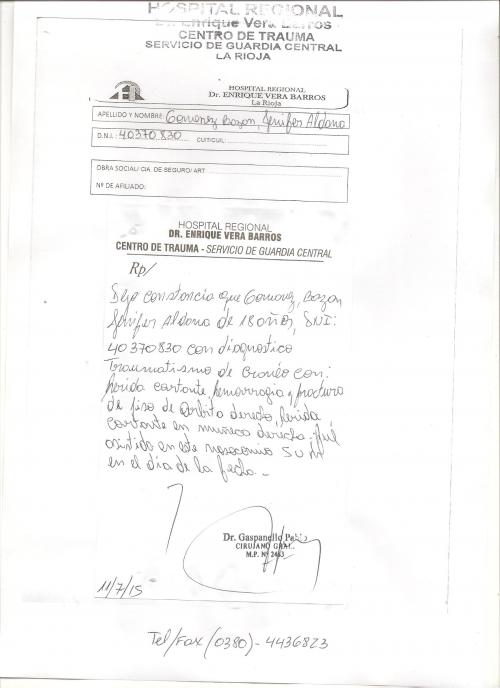 HOSPITAL REGIONAL
Dr. Enrique Vera Barros
CENTRO DE TRAUMA
SERVICIO DE GUARDIA CENTRAL
LA RIOJA
HOSPITAL REGIONAL
Dr. ENRIQUE VERA BARROS
La Rioja
APELLIDO Y NOMBRE: Gomez Bazan, Jenifer Aldana
D.N.I.: 40370830 CUIT/CUIL:
OBRA SOCIAL/ CIA. DE SEGURO/ ART
Nº DE AFILIADO:
HOSPITAL REGIONAL
DR. ENRIQUE VERA BARROS
CENTRO DE TRAUMA - SERVICIO DE GUARDIA CENTRAL
Rp/
Dejo constancia que Gomez, Bazan
Jenifer Aldana de 18 años, DNI:
40370830 con diagnostico
Traumatismo de Cranéo con:
herida cortante, hemorragia y fractura
de piso de orbita derecho, herida
cortante en muñeca derecha. fué
asistido en este nosocomio
en el dia de la fecha.-
Dr. Gaspanello Pablo
CIRUJANO GRAL.
M.P. Nº 2463
11/7/15
Tel/Fax (0380)- 4436823